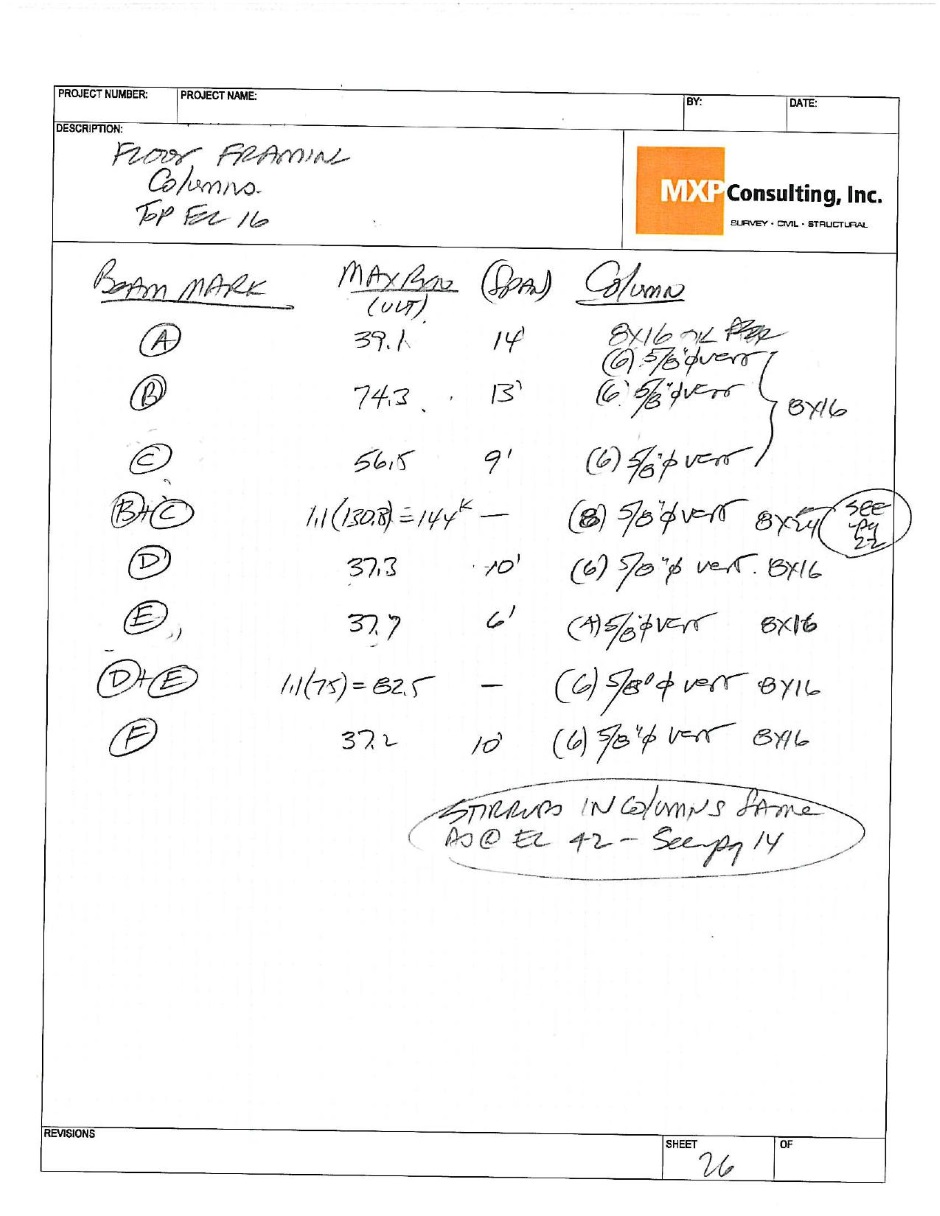 PROJECT NUMBER: PROJECT NAME: BY: DATE:
DESCRIPTION:
FLOOR FRAMING
Columns.
TOP EL 16
MXP Consulting, Inc.
SURVEY • CIVIL • STRUCTURAL
BEAM MARK MAX RXN (SPAN) Column
(ULT)
A 39.1 14' 8X16
(6) 5/8"φ vert
B 74.3 13' (6) 5/8"φ vert
8X16
C 56.5 9' (6) 5/8"φ vert
B+C 1.1(130.8) = 144K — (8) 5/8"φ vert 8X24 SEE
pg
22
D 37.3 10' (6) 5/8"φ vert. 8X16
E 37.7 6' (4) 5/8"φ vert 8X16
D+E 1.1(75) = 82.5 — (6) 5/8"φ vert 8X16
F 37.2 10' (6) 5/8"φ vert 8X16
STIRRUPS IN Columns SAME
AS @ EL 42 - See pg 14
REVISIONS
SHEET OF
26